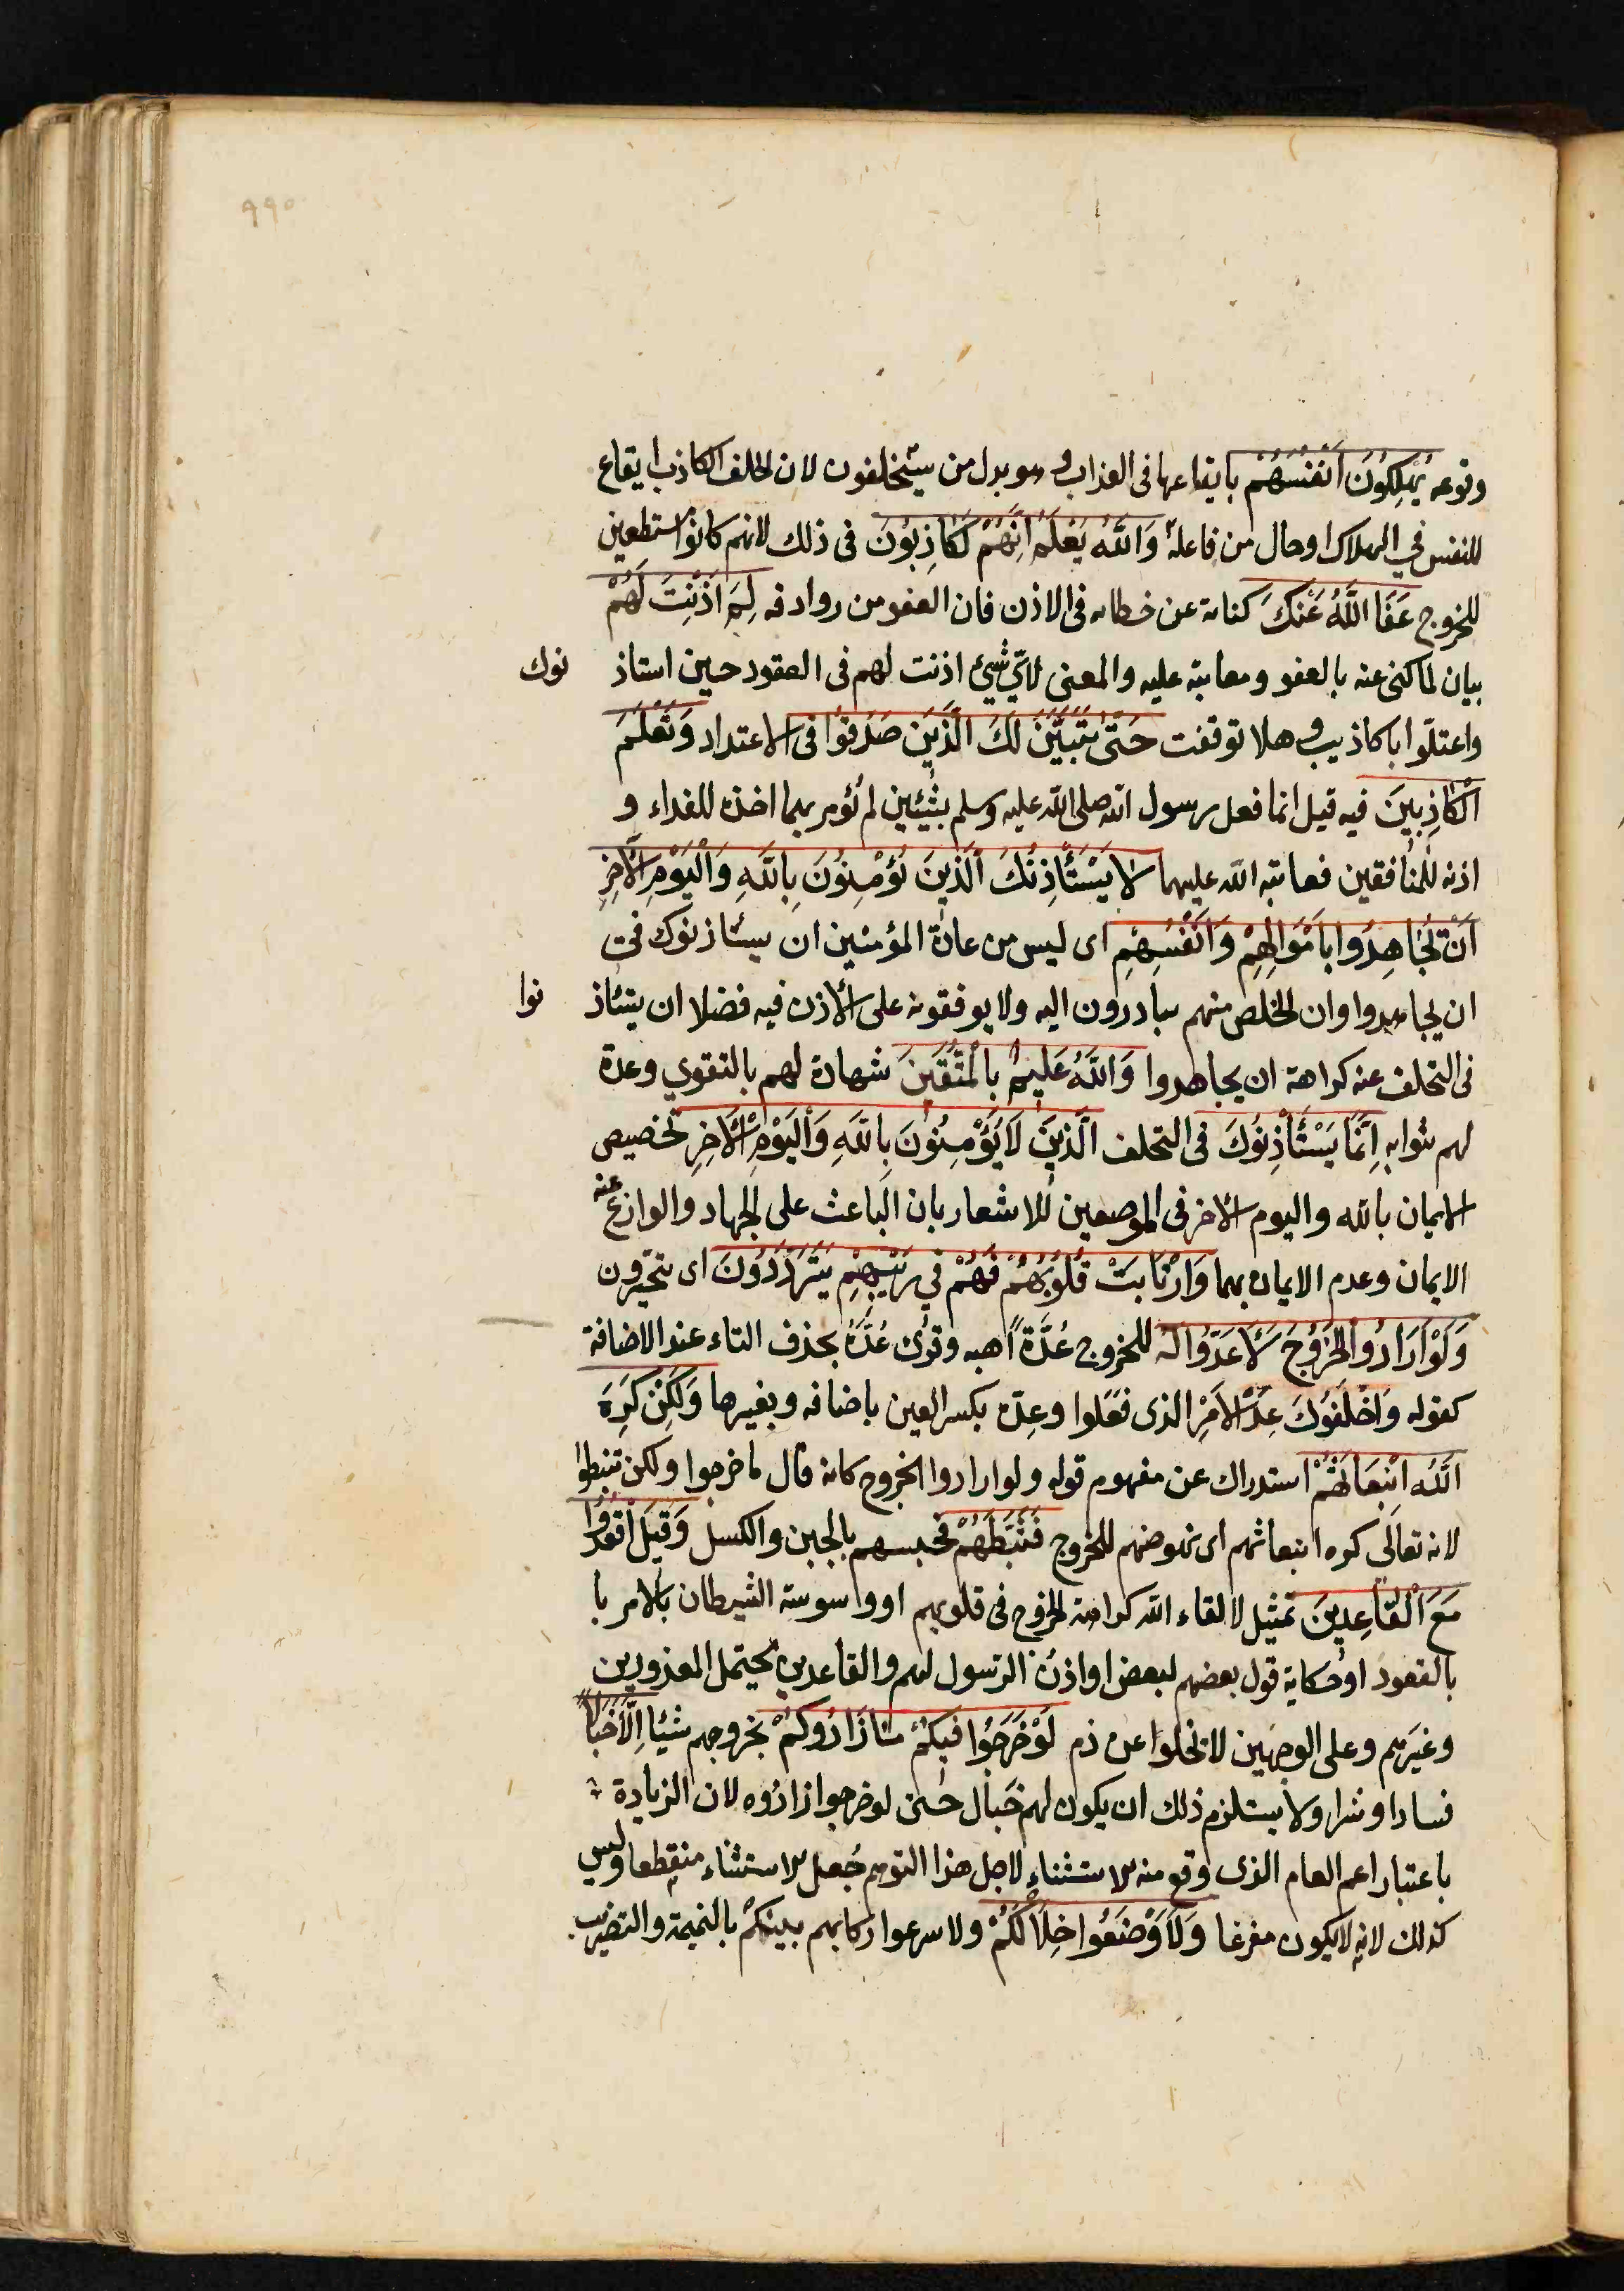 ٩٩٥
وقوعه يُهْلِكُونَ اَنْفُسَهُمْ بايقاعها فى العذاب وهو بدل من سيَحْلفون لان الحلف الكاذب ايقاع
للنفس في الهلاك او حال من فاعله وَاللهُ يَعْلَمُ اِنَّهُمْ لَكَاذِبُونَ فى ذلك لانهم كانوا مستطعين
للخروج عَفَا اللّهُ عَنْكَ كناية عن خطائه فى الاذن فان العفو من روادفه لِمَ اَذِنْتَ لَهُمْ
بيان لما كنى عنه بالعفو ومعاتبة عليه والمعنى لاىّ شئ اذنت لهم فى القعود حين استاذنوك
واعتلّوا باكاذيب وهلا توقفت حَتَّى يَتَبَيَّنَ لَكَ الَّذِينَ صَدَقُوا فى الاعتذار وَتَعْلَمَ
الْكَاذِبِينَ فيه قيل انما فعل رسول الله صلى الله عليه وسلم بشيئين لم يُؤمر بهما اخذه للفداء و
اذنه للمنافقين فعاتبه الله عليهما لا يَسْتَأْذِنُكَ الَّذِينَ يُؤْمِنُونَ بِاللّهِ وَالْيَوْمِ الْآخِرِ
اَنْ يُجَاهِدُوا بِاَمْوَالِهِمْ وَاَنْفُسِهِمْ اى ليس من عادة المؤمنين ان يستاذنوك فى
ان يجاهدوا وان الخلص منهم يبادرون اليه ولا يوقفونه على الاذن فيه فضلا ان يستاذنوا
فى التخلف عنه كراهة ان يجاهدوا وَاللهُ عَلِيمٌ بِالْمُتَّقِينَ شهادة لهم بالتقوي وعدة
لهم بثوابه اِنَّمَا يَسْتَأْذِنُوكَ فى التخلف الَّذِينَ لَا يُؤْمِنُونَ بِاللّهِ وَالْيَوْمِ الْآخِرِ تخصيص
الايمان بالله واليوم الاخر فى الموضعين للاشعار بان الباعث على الجهاد والوازع عنه
الايمان وعدم الايمان بهما وَارْتَابَتْ قُلُوبُهُمْ فَهُمْ فِي رَيْبِهِمْ يَتَرَدَّدُونَ اى يتحيّرون
وَلَوْ اَرَادُوا الْخُرُوجَ لَاَعَدُّوا لَهُ للخروج عُدَّةً اهبه وقرئ عُدَّهُ بحذف التاء عند الاضافة
كقوله وَاَخْلَفُوكَ عِدَ الْاَمْرِ الذى فعَلوا وعِدّه بكسر العين باضافه وبغيرها وَلَكِنْ كَرِهَ
اللّهُ انْبِعَاثَهُمْ استدراك عن مفهوم قوله ولو ارادوا الخروج كانه قال ما خرجوا ولكن تثبطوا
لانه تعالَى كره انبعاثهم اى نهوضهم للخروج فَثَبَّطَهُمْ فحبسهم بالجبن والكسل وَقِيلَ اقْعُدُوا
مَعَ الْقَاعِدِينَ تمثيل لالقاء الله كراهة الخروج فى قلوبهم او واسوسة الشيطان بالامر با
بالقعود او حكاية قول بعضهم لبعض او اذن الرسول لهم والقاعدين يحتمل المعذورين
وغيرهم وعلى الوجهين لا تخلوا عن ذم لَوْ خَرَجُوا فِيكُمْ مَا زَادُوكُمْ بخروجهم شيئا اِلَّا خَبَالًا
فسادا وشرا ولا يستلزم ذلك ان يكون لهم خَبال حتى لو خرجوا زادوه لان الزيادة
باعتبار اعم العام الذى وقع منه الاستثناء لاجل هذا التوهم جُعل الاستثناء منقطعا وليس
كذلك لانه لا يكون مفرغا وَلَاَوْضَعُوا خِلَالَكُمْ ولاسرعوا ركابهم بينكُمْ بالنميمة والتضريب